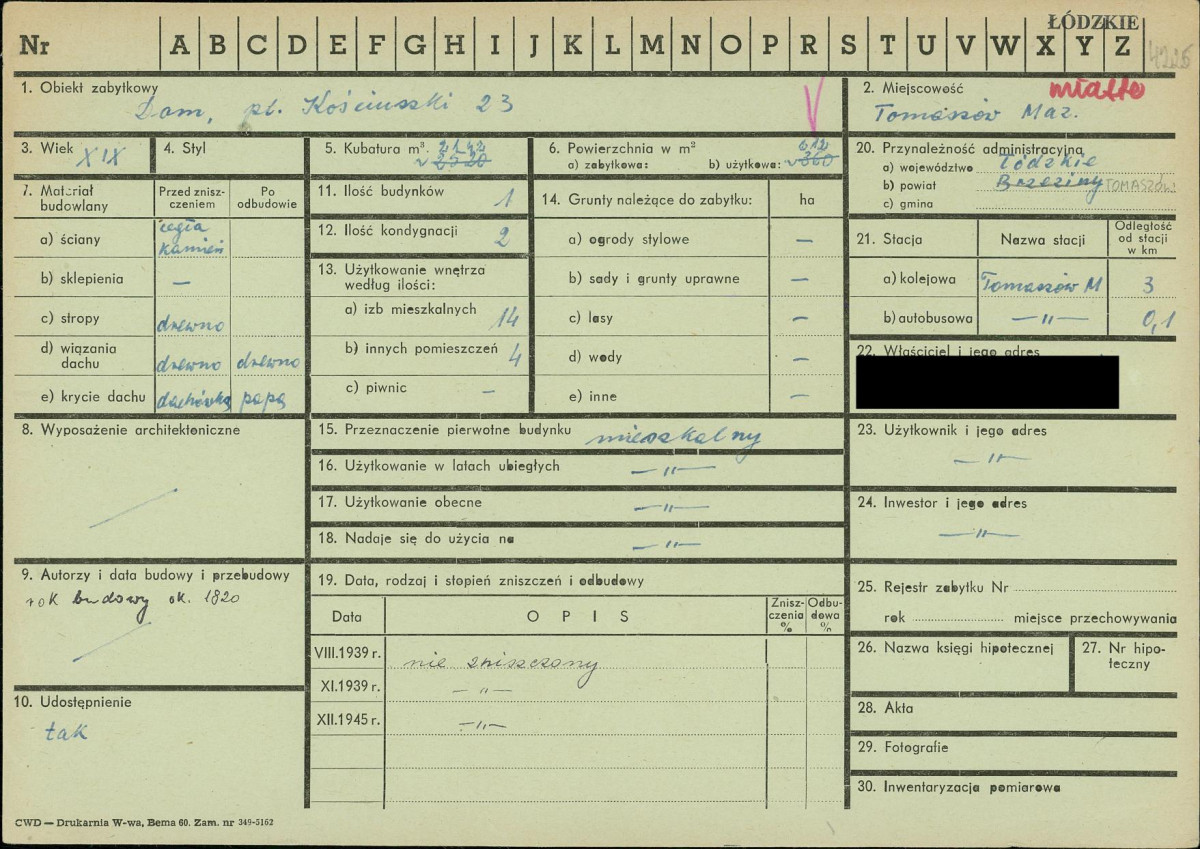 ŁÓDZKIE
Nr A B C D E F G H I J K L M N O P R S T U V W X Y Z
1. Obiekt zabytkowy
Dom, pl. Kościuszki 23
2. Miejscowość
Tomaszów Maz.
3. Wiek XIX
4. Styl
5. Kubatura m³. 2142
6. Powierzchnia w m² 612
a) zabytkowa: b) użytkowa: 360
20. Przynależność administracyjna
a) województwo Łódzkie
b) powiat Brzeziny TOMASZÓW
c) gmina
7. Materiał budowlany
Przed zniszczeniem
Po odbudowie
a) ściany cegła kamień
b) sklepienia —
c) stropy drewno
d) wiązania dachu drewno drewno
e) krycie dachu dachówka papa
11. Ilość budynków 1
12. Ilość kondygnacji 2
13. Użytkowanie wnętrza
według ilości:
a) izb mieszkalnych 14
b) innych pomieszczeń 4
c) piwnic —
14. Grunty należące do zabytku: ha
a) ogrody stylowe —
b) sady i grunty uprawne —
c) lasy —
d) wody —
e) inne —
21. Stacja Nazwa stacji Odległość od stacji w km
a) kolejowa Tomaszów M 3
b) autobusowa —"— 0,1
22. Właściciel i jego adres
8. Wyposażenie architektoniczne
15. Przeznaczenie pierwotne budynku mieszkalny
16. Użytkowanie w latach ubiegłych —"—
17. Użytkowanie obecne —"—
18. Nadaje się do użycia na —"—
23. Użytkownik i jego adres
—"—
24. Inwestor i jego adres
—"—
9. Autorzy i data budowy i przebudowy
rok budowy ok. 1820
10. Udostępnienie
tak
19. Data, rodzaj i stopień zniszczeń i odbudowy
Data OPIS Zniszczenia % Odbudowa %
VIII.1939 r. nie zniszczony
XI.1939 r. —"—
XII.1945 r. —"—
25. Rejestr zabytku Nr
rok miejsce przechowywania
26. Nazwa księgi hipotecznej
27. Nr hipoteczny
28. Akta
29. Fotografie
30. Inwentaryzacja pomiarowa
CWD — Drukarnia W-wa, Bema 60. Zam. nr 349-5162